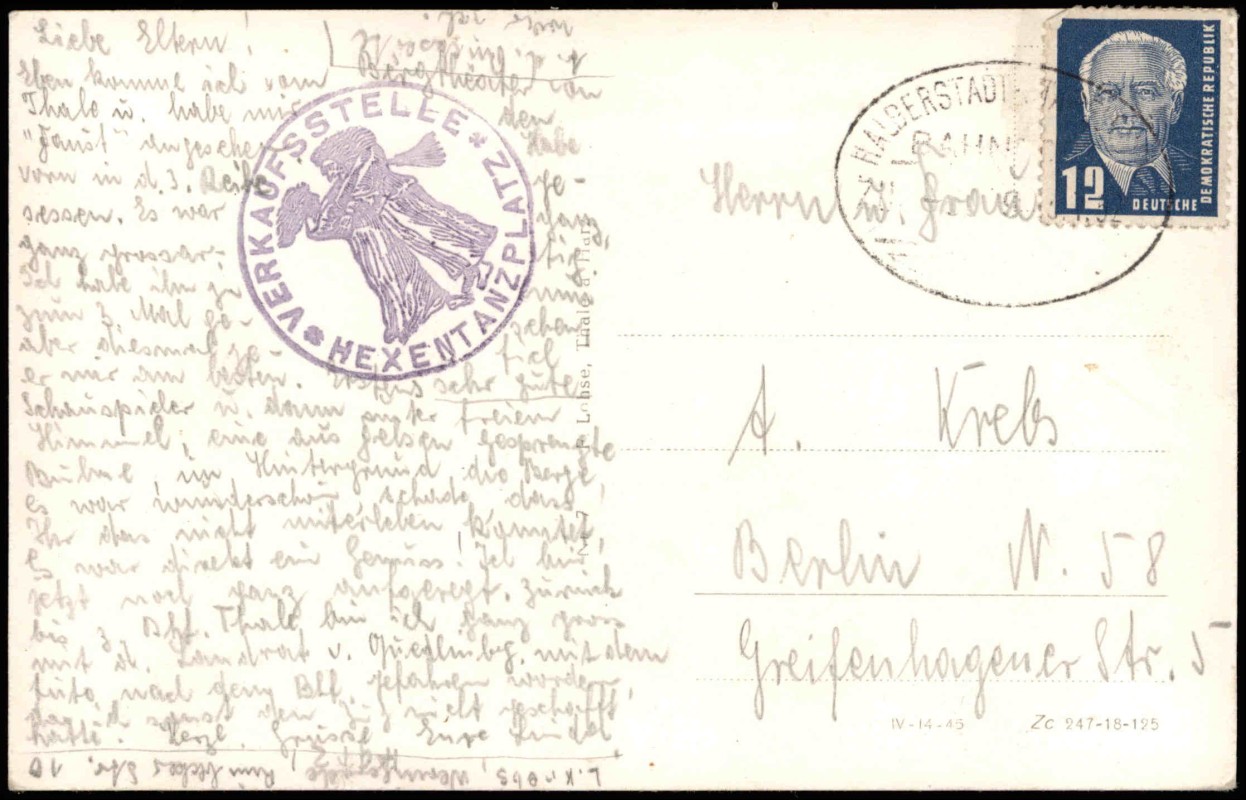 Liebe Eltern!
Eben komme ich vom Bergtheater von
Thale u. habe mir den
"Faust" angesehen. Habe
vorn in d. 3. Reihe ge-
sessen. Es war ganz,
ganz grossar- tig.
Ich habe ihn ja nun
zum 3. Mal ge- sehen
aber diesmal ge- fiel
er mir am besten. Erstens sehr gute
Schauspieler u. dann unter freiem
Himmel, eine aus Felsen gesprengte
Bühne, im Hintergrund die Berge,
es war wunderschön, schade, dass
Ihr das nicht miterleben konntet,
Es war direkt ein Genuss! Ich bin
jetzt noch ganz aufgeregt. Zurück
bis z. Bhf. Thale bin ich ganz gross
mit d. Landrat v. Quedlinbg. mit dem
Auto nach dem Bhf. gefahren worden,
da ich sonst den Zug nicht geschafft
hätte. Herzl. Grüsse Eure
L. Krebs, Wernigerode Str. 10
VERKAUFSSTELLE
HEXENTANZPLATZ
Lohse, Thale a. Harz
HALBERSTADT
BAHN
12
DEUTSCHE
DEMOKRATISCHE REPUBLIK
Herrn u. Frau
A. Krebs
Berlin N. 58
Greifenhagener Str. 5
IV-14-45 Zc 247-18-125